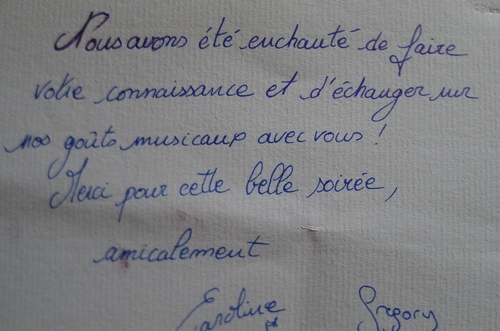 Nous avons été enchanté de faire
votre connaissance et d'échanger sur
nos goûts musicaux avec vous !
Merci pour cette belle soirée,
amicalement
Caroline Gregory